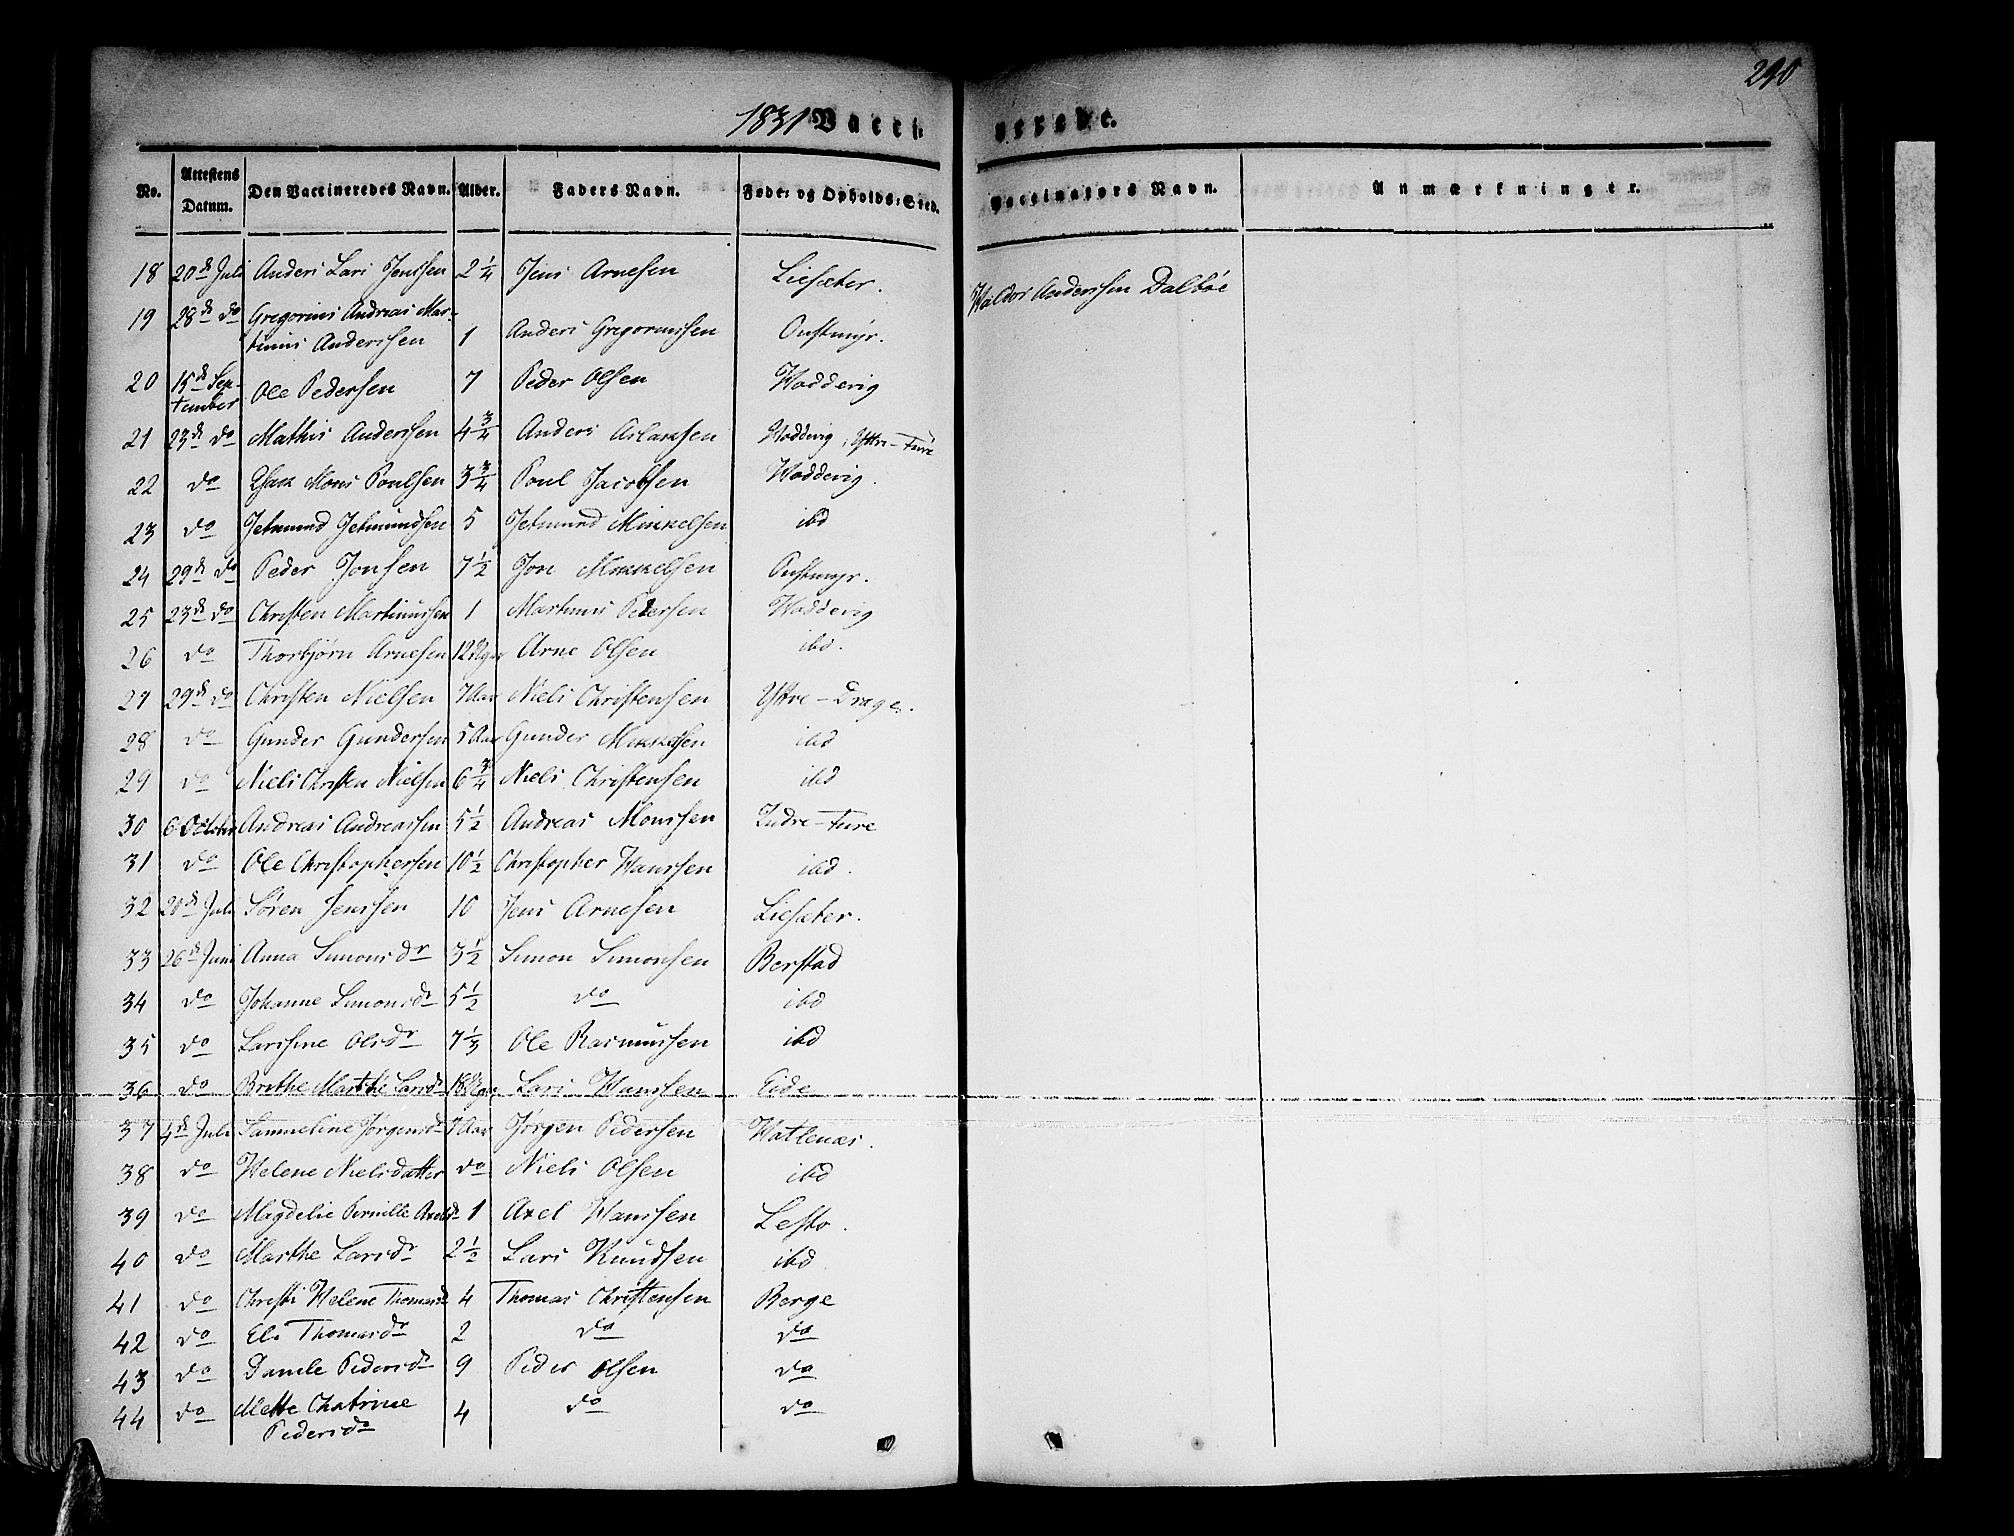 290
1831 Vacci nerede.
No. Attestens Datum. Den Vaccineredes Navn. Alder. Faders Navn. Føde- og Opholds-Sted. Vaccinators Navn. Anmærkninger.
18 20de Juli Anders Lars Jenssen 2 1/4 Jens Arnesen Liesæter. Haldor Anderssen Dalbøe
19 28de do Gregorius Andreas Mar-
tinus Anderssen 1 Anders Gregoriussen Oustmyr.
20 15de Sep-
tember Ole Pedersen 7 Peder Olsen Hoddevig
21 23de do Mathis Anderssen 4 3/4 Anders Aslaksen Hoddevig, Yttre-Fure
22 do Isak Mons Poulsen 3 3/4 Poul Jacobsen Hoddevig.
23 do Jetmund Jetmundsen 5 Jetmund Mikkelsen ibd
24 29de do Peder Jonsen 7 1/2 Jon Mikkelsen Oustmyr.
25 23de do Christen Martinussen 1 Martinus Pedersen Hoddevig
26 do Thorbjørn Arnesen 12 Uger Arne Olsen ibd.
27 29de do Christen Nielsen 7 Aar Niels Christensen Yttre-Drage.
28 do Gunder Gundersen 5 Aar Gunder Mikkelsen ibd
29 do Niels Christen Nielsen 6 3/4 Niels Christensen ibd
30 6 October Andreas Andreassen 5 1/2 Andreas Monssen Indre-Fure
31 do Ole Christophersen 10 1/2 Christopher Hanssen ibd.
32 20de Juli Søren Jenssen 10 Jens Arnesen Liesæter.
33 26de Juni Anna Simonsdr 3 1/2 Simon Simonsen Berstad
34 do Johanne Simonsdr 5 1/2 do ibd
35 do Larsine Olsdr 7 1/3 Ole Rasmussen ibd
36 do Brithe Marthe Larsdr 18 Uger Lars Hanssen Eide
37 4de Juli Sammeline Jørgensdr 7 Aar Jørgen Pedersen Hatlenæs.
38 do Helene Nielsdatter do Niels Olsen ibd
39 do Magdelie Pernille Axelsdr 1 Axel Hanssen Lesto.
40 do Marthe Larsdr 2 1/2 Lars Knudsen ibd
41 do Christi Helene Thomasd 4 Thomas Christensen Berge
42 do Eli Thomasdr 2 do do
43 do Danele Pedersdr 9 Peder Olsen do
44 do Mette Chatrine
Pedersdr 4 do do